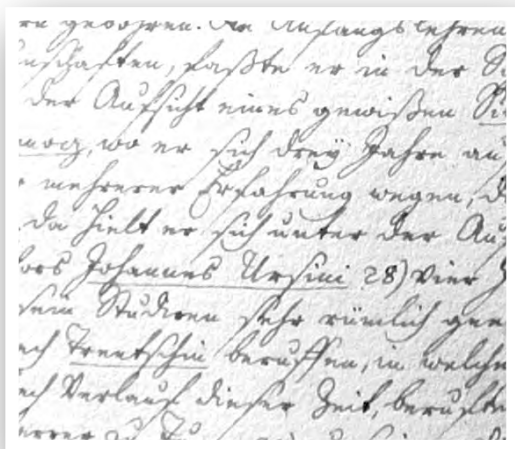 gebohren. Die Anfangs lehren
nschaften, faßte er in der S
der Aufsicht eines gewißen Si
mog, wo er sich dreÿ Jahre au
mehrerer Erfahrung wegen, d
da hielt er sich unter der Au
ors Johannes Ursini 28) vier J
sein Studiren sehr rümlich gee
ch Trentschin beruffen, in welche
ch Verlauf dieser Zeit, berufte